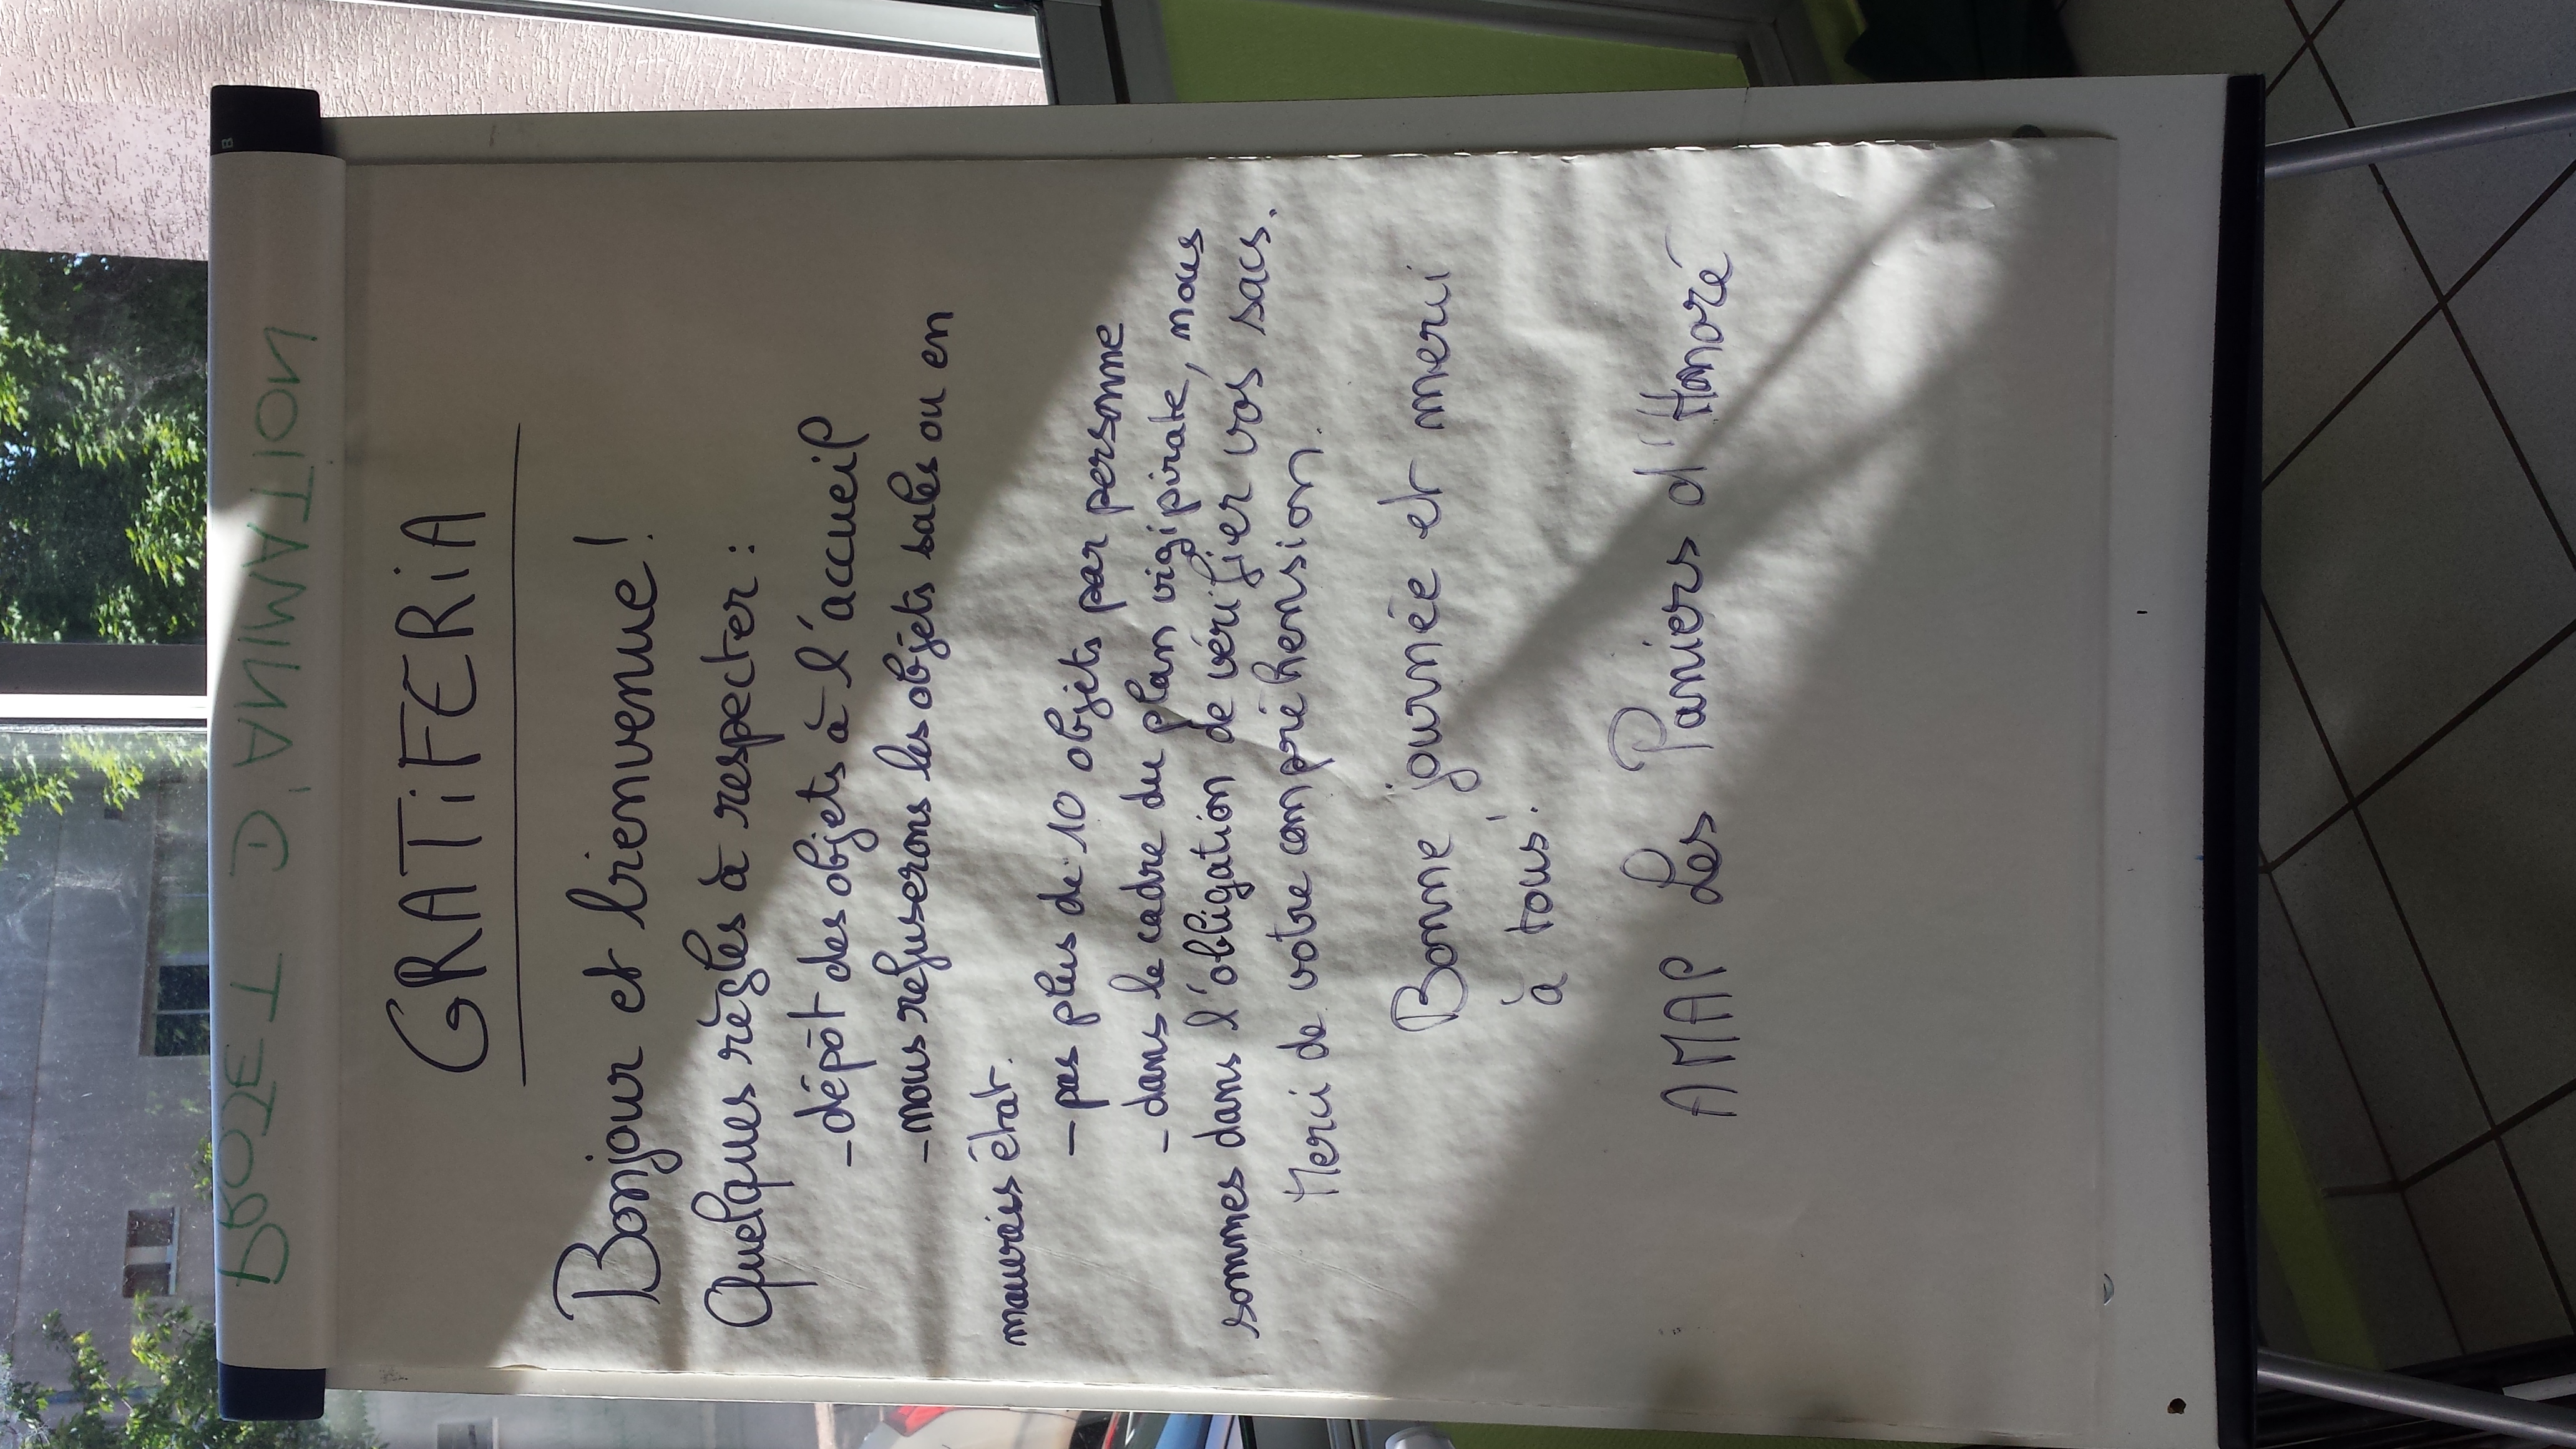 PROJET D'ANIMATION
GRATiFERiA
Bonjour et bienvenue!
Quelques règles à respecter:
- dépôt des objets à l'accueil
- nous refuserons les objets sales ou en
mauvais état.
- pas plus de 10 objets par personne
- dans le cadre du plan vigipirate, nous
sommes dans l'obligation de vérifier vos sacs.
Merci de votre compréhension.
Bonne journée et merci
à tous.
AMAP Les Paniers d'Honoré